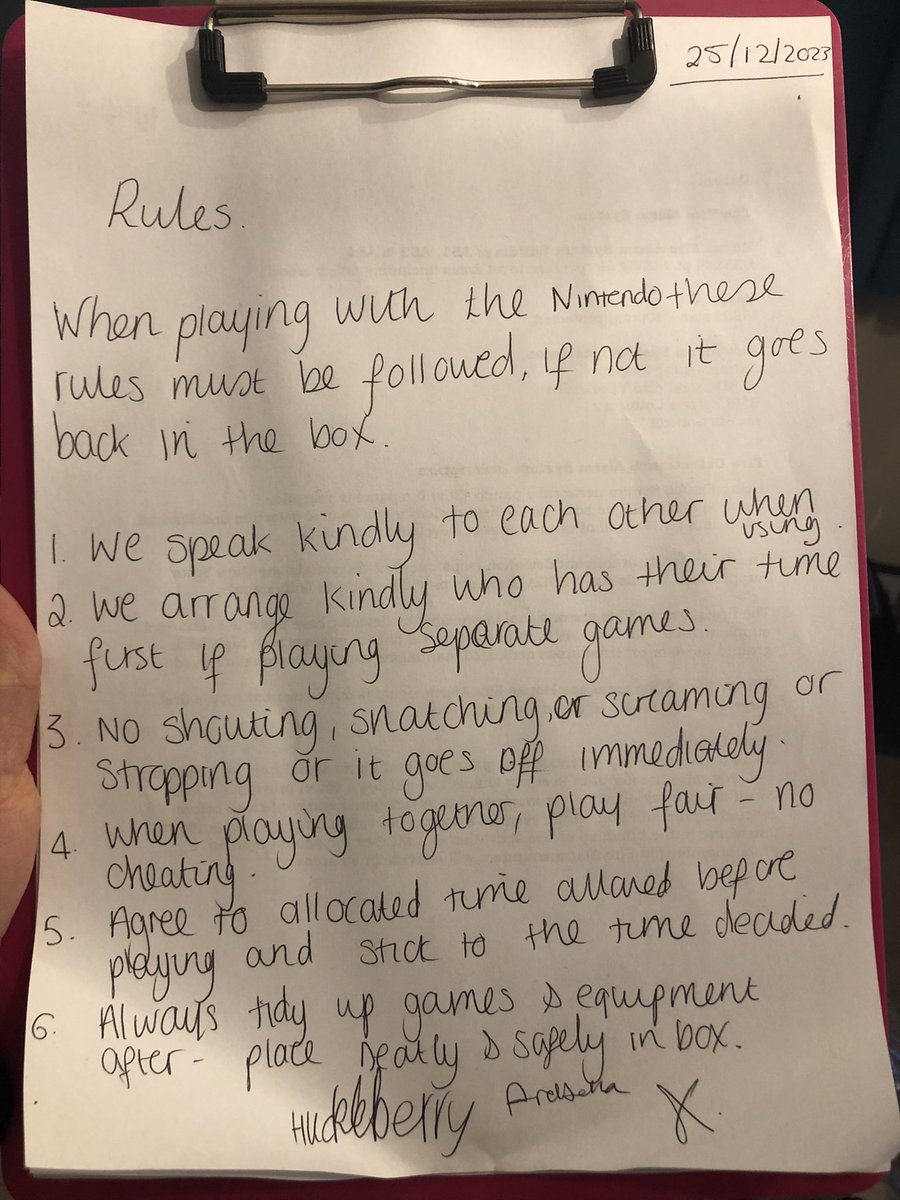 25/12/2023
Rules.
When playing with the Nintendo these
rules must be followed, if not it goes
back in the box.
1. We speak kindly to each other when
using.
2. We arrange kindly who has their time
first if playing separate games.
3. No shouting, snatching, or screaming or
stropping or it goes off immediately.
4. When playing together, play fair - no
cheating.
5. Agree to allocated time allowed before
playing and stick to the time decided.
6. Always tidy up games & equipment
after - place neatly & safely in box.
Huckleberry X.